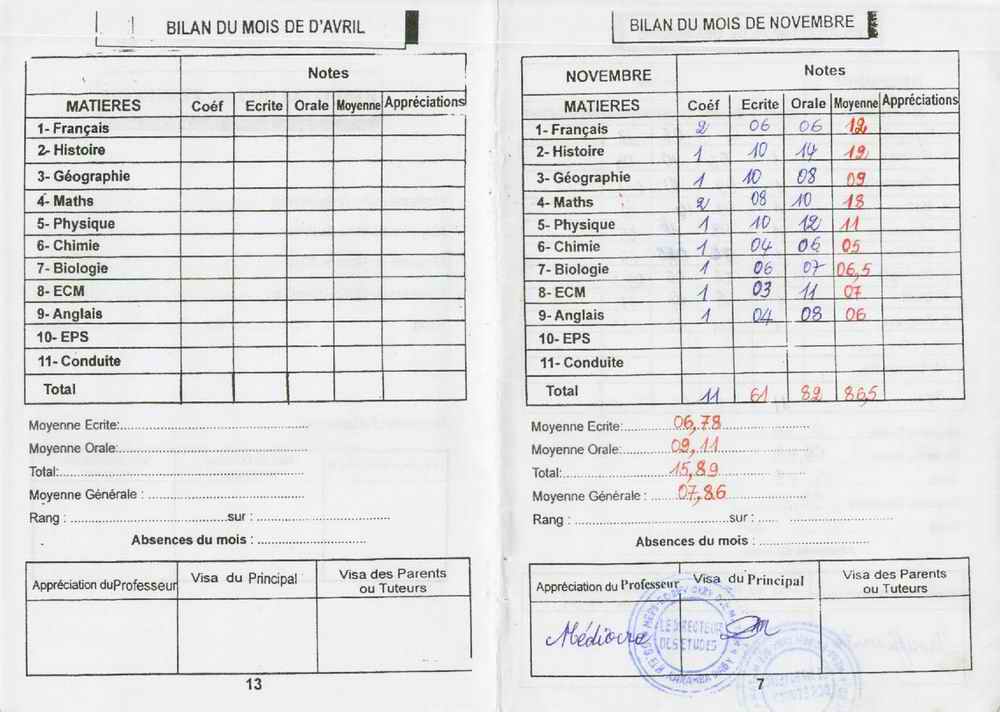 BILAN DU MOIS DE D'AVRIL
Notes
MATIERES Coéf Ecrite Orale Moyenne Appréciations
1- Français
2- Histoire
3- Géographie
4- Maths
5- Physique
6- Chimie
7- Biologie
8- ECM
9- Anglais
10- EPS
11- Conduite
Total
Moyenne Ecrite:
Moyenne Orale:
Total:
Moyenne Générale :
Rang : sur :
Absences du mois :
Appréciation du Professeur Visa du Principal Visa des Parents ou Tuteurs
13
BILAN DU MOIS DE NOVEMBRE
NOVEMBRE Notes
MATIERES Coéf Ecrite Orale Moyenne Appréciations
1- Français 2 06 06 12
2- Histoire 1 10 14 12
3- Géographie 1 10 08 09
4- Maths 2 08 10 18
5- Physique 1 10 12 11
6- Chimie 1 04 06 05
7- Biologie 1 06 07 06,5
8- ECM 1 03 11 07
9- Anglais 1 04 08 06
10- EPS
11- Conduite
Total 11 61 82 86,5
Moyenne Ecrite: 06,78
Moyenne Orale: 09,11
Total: 15,89
Moyenne Générale : 07,86
Rang : sur :
Absences du mois :
Appréciation du Professeur Visa du Principal Visa des Parents ou Tuteurs
Médiocre
LE DIRECTEUR
DES ETUDES
7